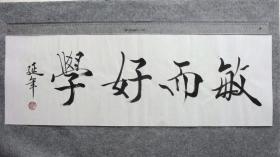 敏而好學
延年